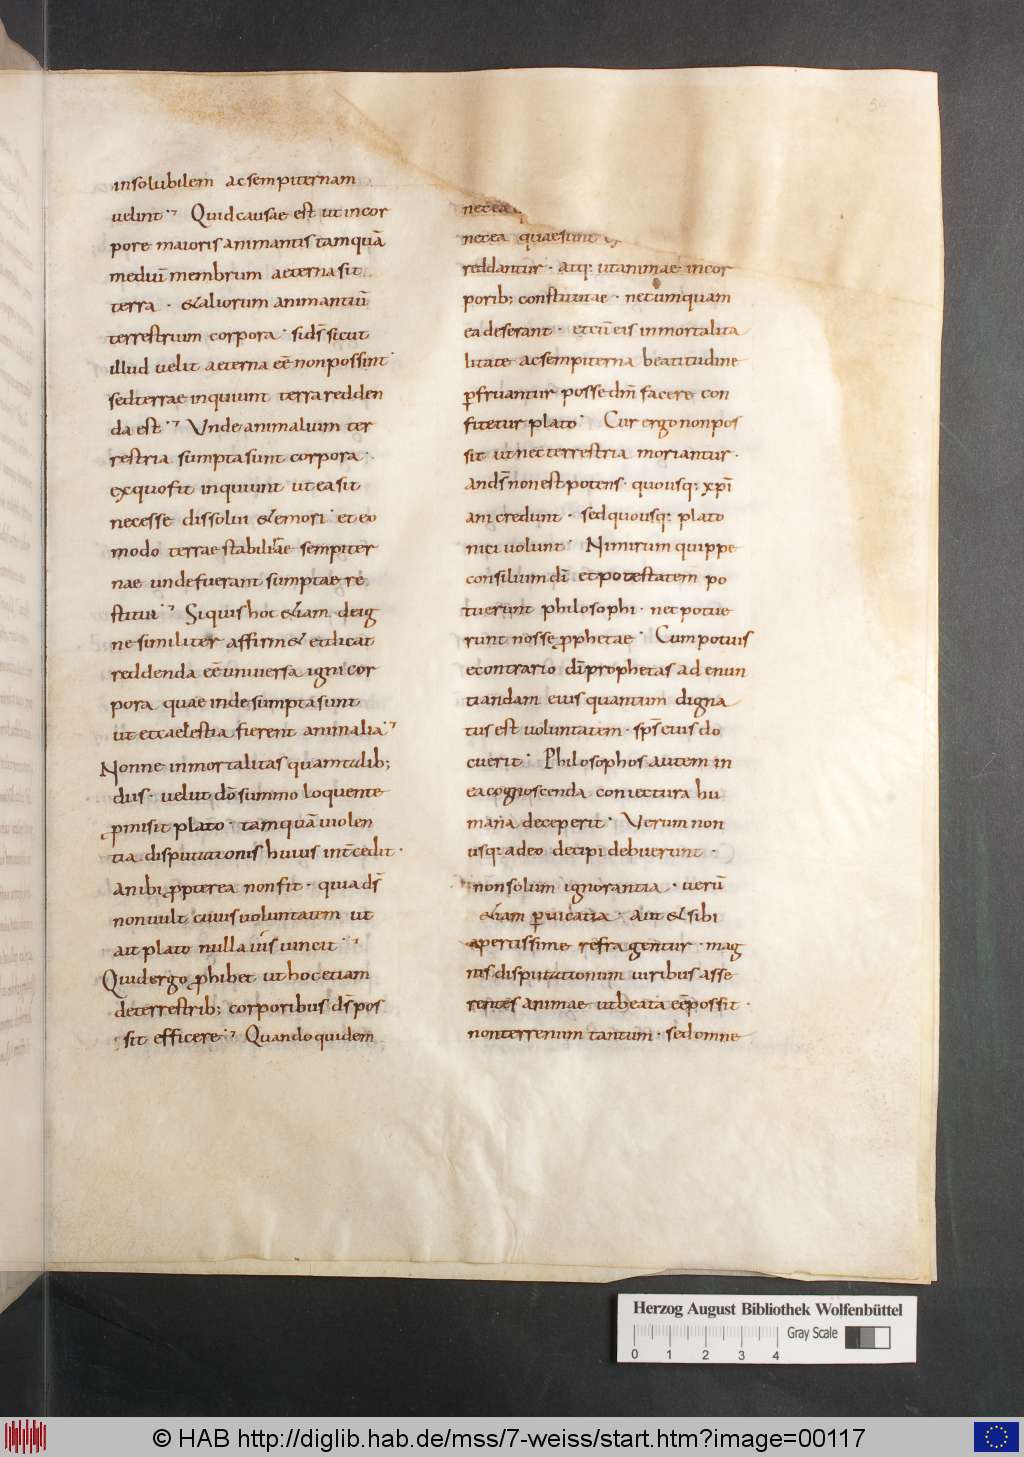 insolubilem ac sempiternam
uelint Quid causae est ut incor
pore maioris animantis tamquā
mediū membrum aeterna sit
terra · & aliorum animantiū
terrestrium corpora · si ds̄ sicut
illud uelit aeterna eē̄ non possint
sed terrae inquiunt terra redden
da est Vnde animalium ter
restria sumpta sunt corpora ·
ex quo fit inquiunt ut ea sit
necesse dissolui & emori · et eo
modo terrae stabili āe sempiter
nae unde fuerant sumptae re
stitui Si quis hoc &iam de ig
ne similiter affirm& et dicat
reddenda eē uniuersa igni cor
pora quae inde sumpta sunt
ut et caelestia fierent animalia
Nonne inmortalitas quam talib;
diis · uelut dō summo loquente
ꝓmisit plato · tamquā uiolen
tia disputationis huius int̄cedit ·
An ibi ꝓpterea non fit · quia ds̄
non uult cuius uoluntatem ut
ait plato nulla uis uincit
Quid ergo ꝓhibet ut hoc etiam
de terrestrib; corporibus ds̄ pos
sit efficere Quando quidem
nec ea
nec ea quae sunt
reddantur · atq: ut animae incor
porib; constitutae · nec umquam
ea deserant · et cū eis inmortalita
litate ac sempiterna beatitudine
ꝑfruantur posse dm̄ facere con
fitetur plato · Cur ergo non pos
sit ut nec terrestria moriantur ·
An ds̄ non est potens · quousq: xp̄i
ani credunt · sed quousq: plato
nici uolunt · Nimirum quippe
consilium dī et potestatem po
tuerunt philosophi · nec potue
runt nosse ꝓphetae · Cum potuis
e contrario dī prophetas ad enun
tiandam eius quantum digna
tus est uoluntatem · sps̄ eius do
cuerit · Philosophos autem in
ea cognoscenda coniectura hu
mana deceperit · Verum non
usq: adeo decipi debuerunt ·
non solum ignorantia · uerū
&iam ꝑuicatia · aut & sibi
apertissime refragentur · mag
nis disputationum uiribus asse
rentes animae ut beata eē possit ·
non terrenum tantum · sed omne
Herzog August Bibliothek Wolfenbüttel
Gray Scale
0 1 2 3 4
© HAB http://diglib.hab.de/mss/7-weiss/start.htm?image=00117